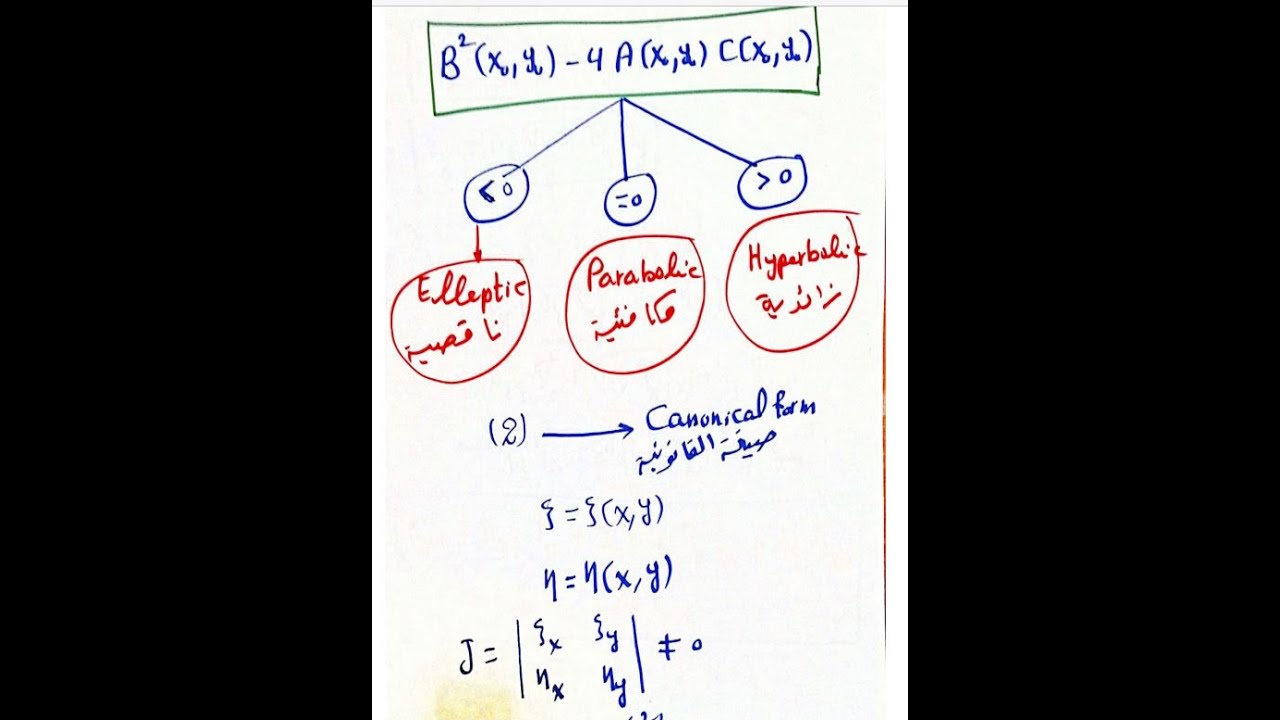 B²(x₀,y₀) - 4 A(x₀,y₀) C(x₀,y₀)
< 0
= 0
> 0
Elleptic
ناقصية
Parabolic
مكافئية
Hyperbolic
زائدية
(2) → Canonical form
صيغة القانونية
ξ = ξ(x,y)
η = η(x,y)
J = | ξx ξy | ≠ 0
| ηx ηy |